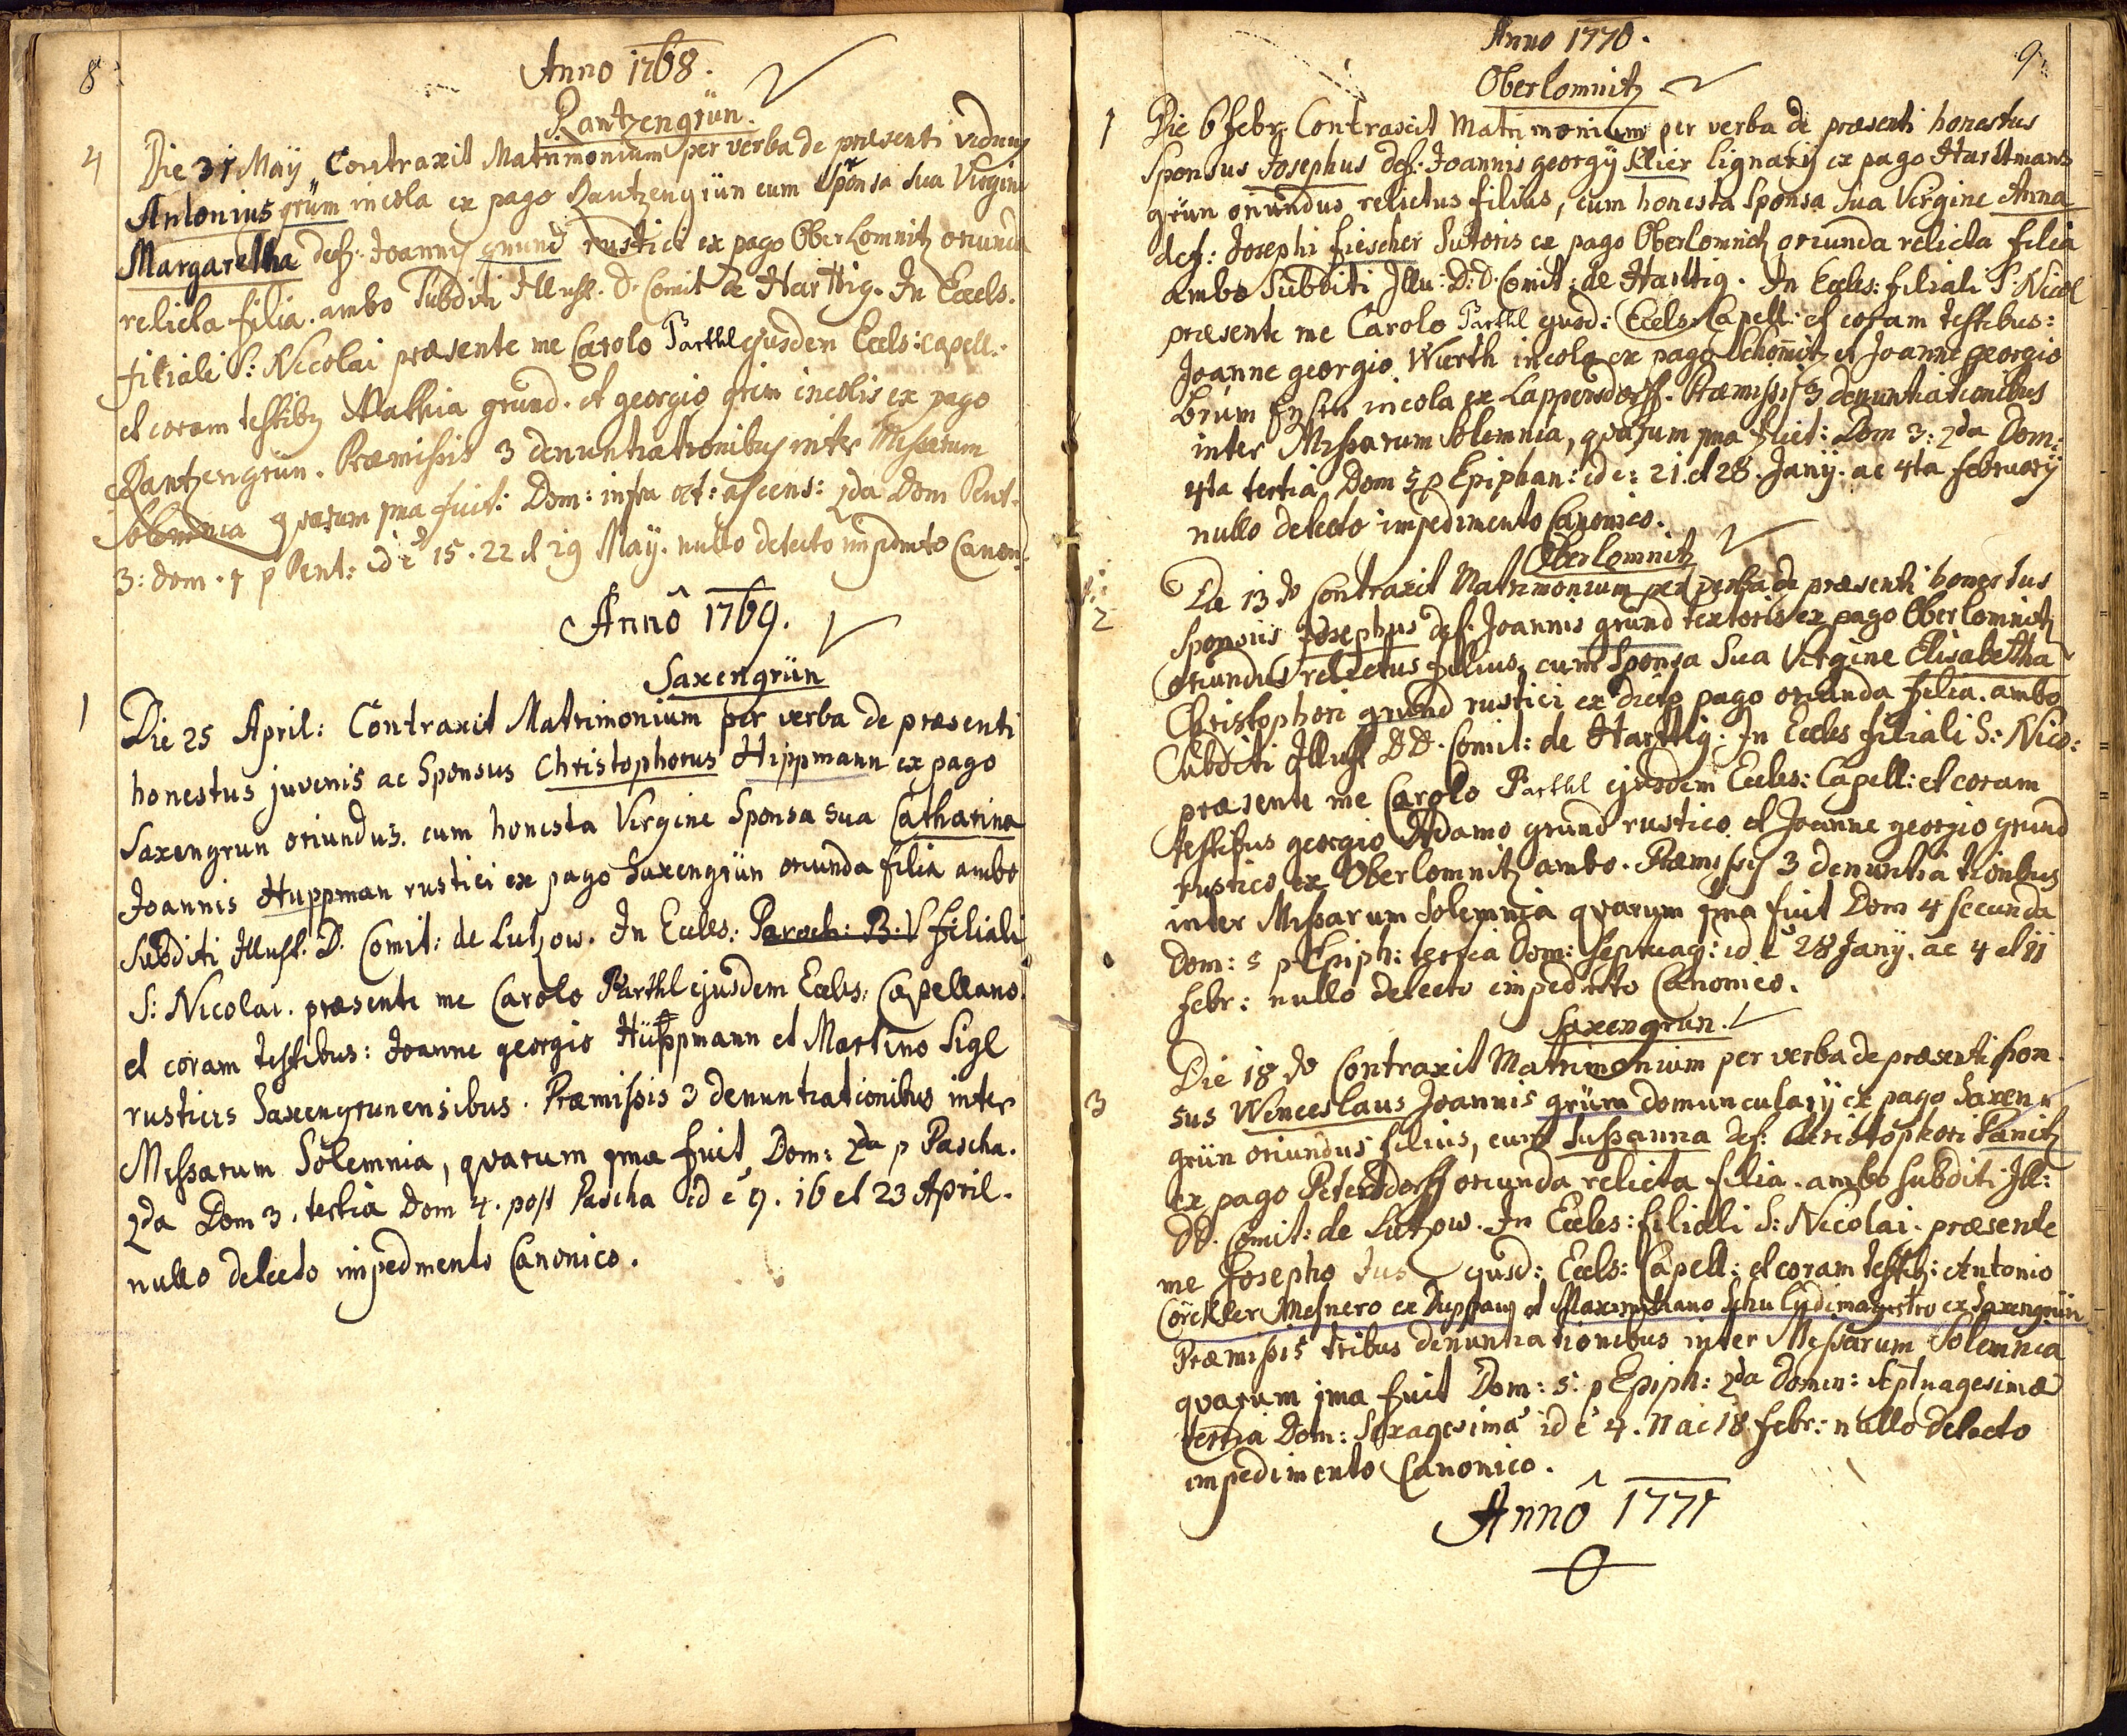 8
Anno 1768.
Rantzengrün.
4 Die 31 Maÿ Contraxit Matrimonium per verba de præsenti viduus
Antonius grüm incola ex pago Rantzengrün cum Sponsa sua Virgine
Margaretha def: Joannis grund rustici ex pago Oberlomnitz oriunda
relicta filia. ambo Subditi Illust. D. Comit de Harttig. In Eccls.
filiali S: Nicolai præsente me Carolo Parthl ejusdem Eccls: capell:
et coram testibus Mathia grund. et georgio grim incolis ex pago
Rantzengrün. Præmissis 3 denuntiationibus inter Missarum
Solemnia quarum 1ma fuit: Dom: infra oct: ascens: 2da Dom Pent.
3: dom. 1 p Pent: id ē 15. 22 et 29 Maÿ. nullo detecto impdmto Canon:
Annô 1769.
Saxengrün
1 Die 25 April: Contraxit Matrimonium per verba de præsenti
honestus juvenis ac Sponsus Christophorus Hippmann ex pago
Saxengrun oriundus. cum honesta Virgine Sponsa sua Catharina
Joannis Huppman rustici ex pago Saxengrün oriunda filia ambo
Subditi Illust. D. Comit: de Lutzow. In Eccles: Paroch: B: V filiali
S: Nicolai. præsente me Carolo Parthl ejusdem Eccles: Capellano.
et coram testibus: Joanne georgio Hüppmann et Martino Sigl
rusticis Saxengrunensibus. Præmissis 3 denuntiationibus inter
Missarum Solemnia, quarum 1ma fuit Dom: 2da p Pascha.
2da Dom 3. tertia Dom 4. post Pascha id ē 9. 16 et 23 April.
nullo detecto impedmento Canonico.
9.
Anno 1770.
Oberlomnitz
1 Die 6 febr: Contraxit Matrimonium per verba de præsenti honestus
Sponsus Josephus def: Joannis georgÿ Klier lignarÿ ex pago Harttmans
grün oriundus relictus filius, cum honesta Sponsa Sua Virgine Anna
def: Josephi fiescher Sutoris ex pago Oberlomnitz oriunda relicta filia
ambo Subditi Illu: D: D. Comit: de Harttig. In Eccles: filiali S: Nicol
præsente me Carolo Parthl ejusd: Eccls: Capell: et coram testibus:
Joanne georgio Wurth incola ex pago Schömitz et Joanne georgio
brüm incola ex Lappersdorff. Præmissis 3 denuntiationibus
inter Missarum Solemnia, quarum 1ma fuit: Dom 3: 2da Dom:
4ta tertia Dom 5 p Epiphan: id e: 21. et 28. Janÿ. ac 4ta februarÿ
nullo detecto impedimento Canonico.
Oberlomnitz
2 Die 13 do Contraxit Matrimonium per verba de præsenti honestus
Sponsus Josephus def. Joannis grund textoris ex pago Oberlomnitz
oriundus relictus filius, cum Sponsa Sua Virgine Elisabetha
Christophori grund rustici ex dicto pago oriunda filia. ambo
Subditi Illust DD. Comit: de Harttig. In Eccles filiali S: Nico:
præsente me Carolo Parthl ejusdem Eccles: Capell: et coram
testibus georgio Adamo grund rustico et Joanne georgio grund
rustico ex Oberlomnitz ambo. Præmissis 3 denuntiationibus
inter Missarum Solemnia quarum 1ma fuit Dom 4 secunda
Dom: 5 p Epiph: tertia Dom: Septuag: id ē 28 Janÿ. ac 4 et 11
febr: nullo detecto impedmto Canonico.
Saxengrun.
3 Die 18 do Contraxit Matrimonium per verba de præsenti spon
sus Wenceslaus Joannis grüm domuncularÿ ex pago Saxen
grün oriundus filius, cum Sussanna def: Christophori Panitz
ex pago Petersdorff oriunda relicta filia. ambo subditi Ill:
DD. Comit: de Lutzow. In Eccles: filiali S: Nicolai. præsente
me Josepho Jus ejusd: Eccls: Capell: et coram testib: Antonio
Cörckler Mesnero ex Duppau et Maximiliano Schu Ludimagistro ex Saxengrün
Præmissis tribus denuntiationibus inter Missarum Solemnia
quarum 1ma fuit Dom: 5: p Epiph: 2da Domin: Septuagesimæ
tertia Dom: Sexagesima id ē 4. 11 ac 18 febr: nullo detecto
impedimento Canonico.
Annô 1771
0